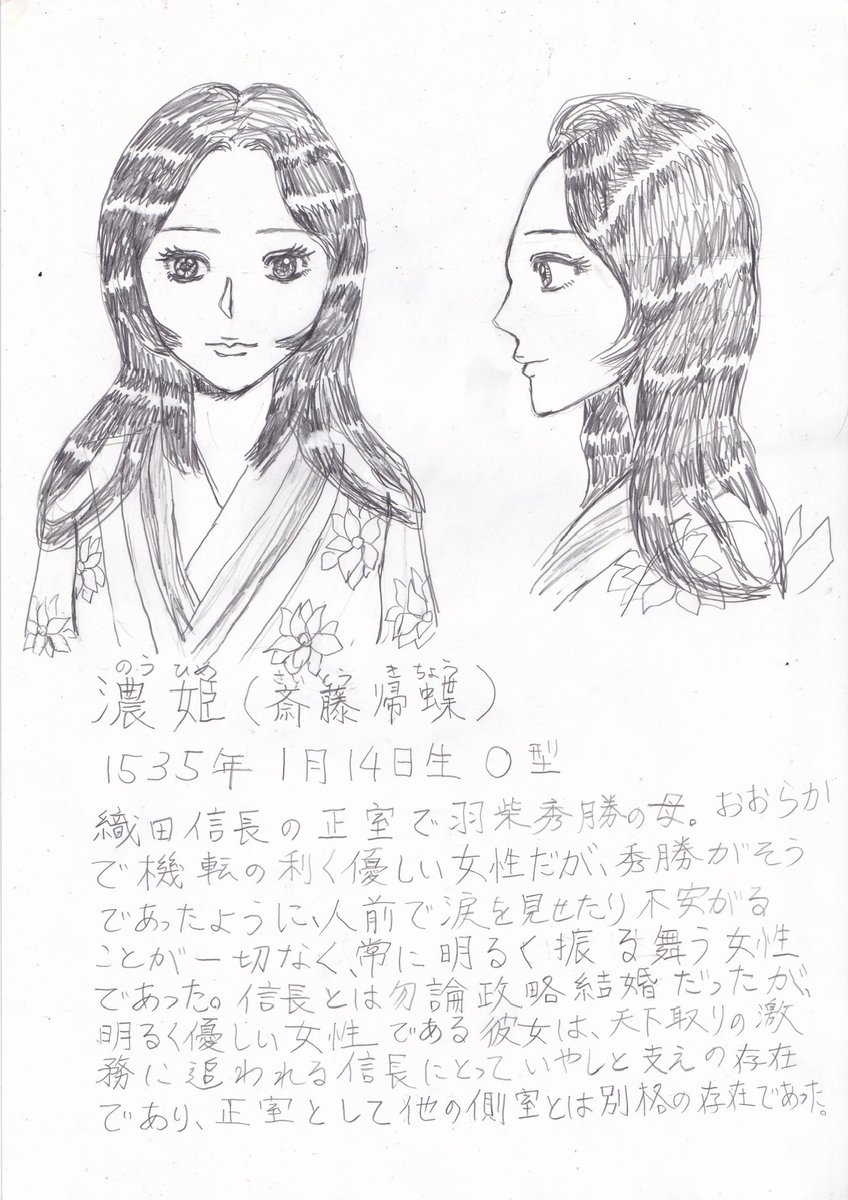 のう ひめ さい とう き ちょう
濃姫(斎藤帰蝶)
1535年 1月14日生 O型
織田信長の正室で羽柴秀勝の母。おおらか
で機転の利く優しい女性だが、秀勝がそう
であったように、人前で涙を見せたり不安がる
ことが一切なく、常に明るく振る舞う女性
であった。信長とは勿論政略結婚だったが、
明るく優しい女性である彼女は、天下取りの激
務に追われる信長にとっていやしと支えの存在
であり、正室として他の側室とは別格の存在であった。